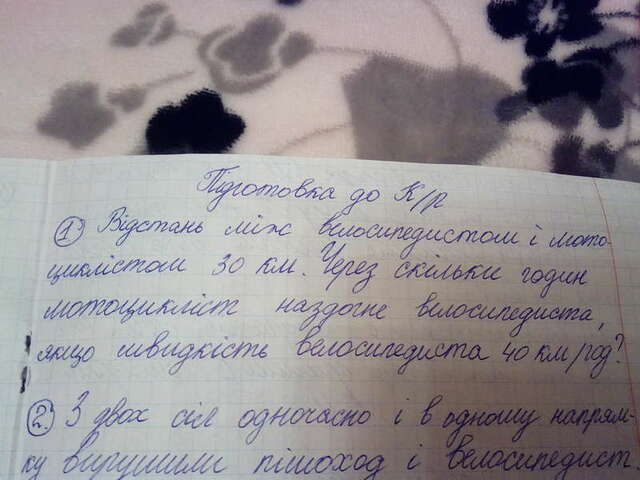 Підготовка до К/р
1. Відстань між велосипедистом і мото-
циклістом 30 км. Через скільки годин
мотоцикліст наздогне велосипедиста,
якщо швидкість велосипедиста 40 км/год?
2. З двох сіл одночасно і в одному напрям-
ку вирушили пішоход і велосипедист.